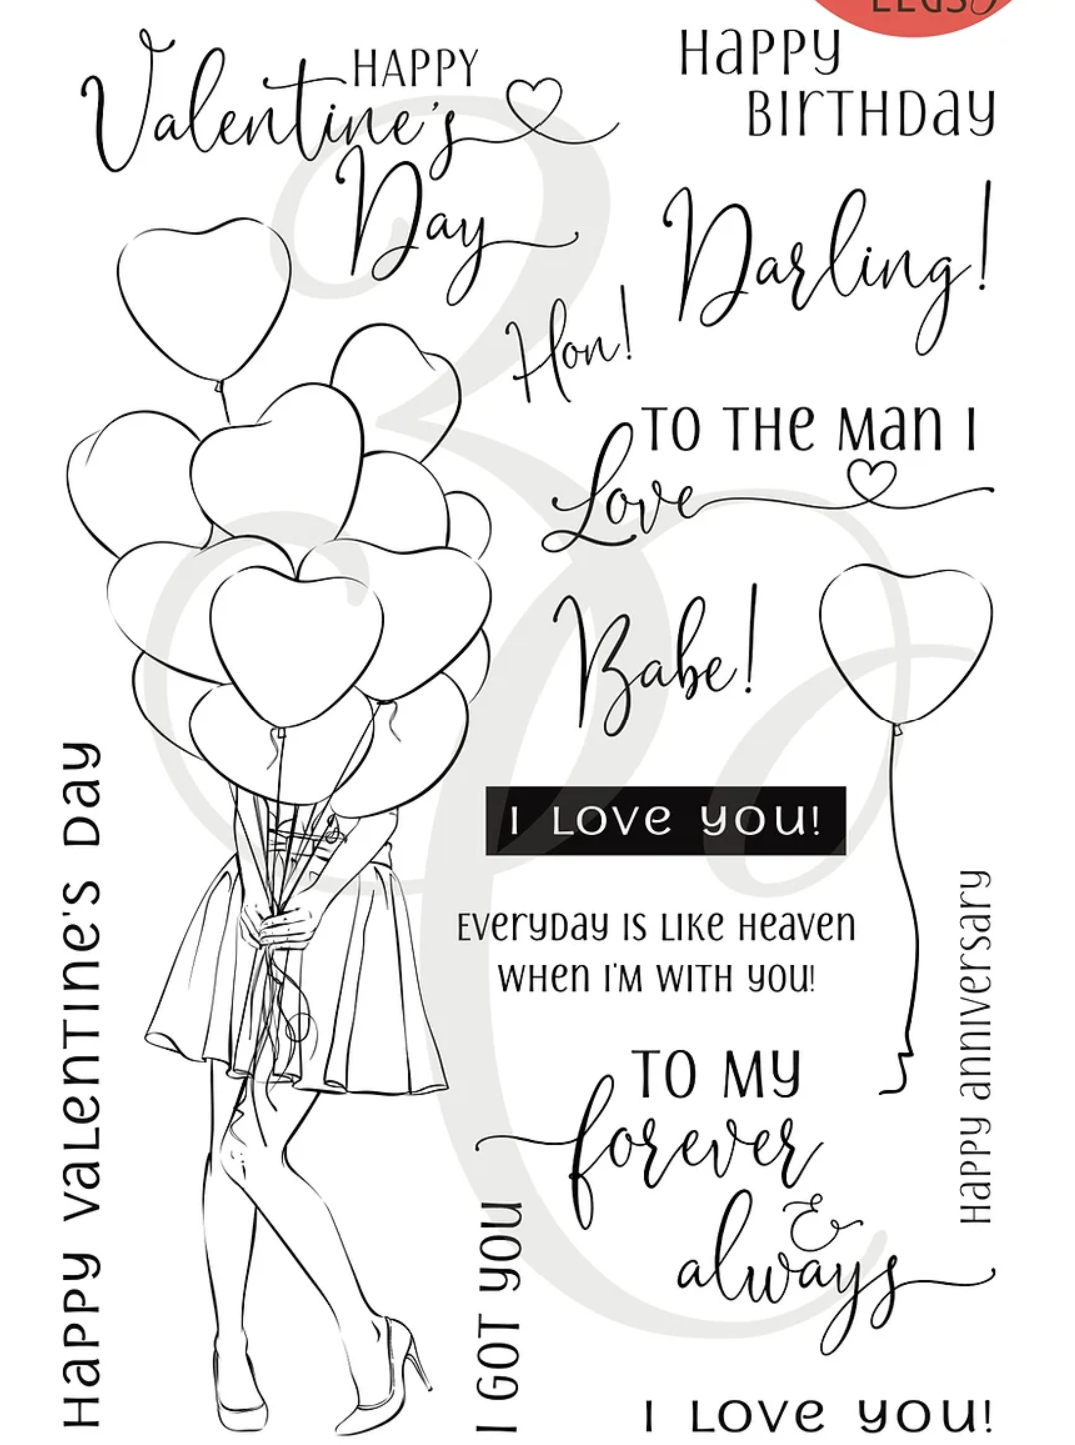 LEGS
HAPPY
Valentine's
Day
HAPPY
BIRTHDAY
Darling!
Hon!
TO THE MAN I
Love
Babe!
I LOVE YOU!
EVERYDAY IS LIKE HEAVEN
WHEN I'M WITH YOU!
HAPPY VALENTINE'S DAY
HAPPY ANNIVERSARY
TO MY
forever
&
always
I GOT YOU
I LOVE YOU!